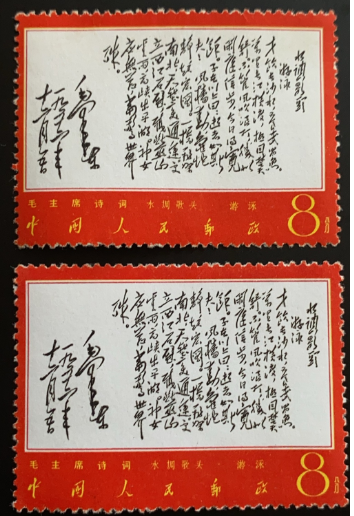 水调歌头
游泳
才饮长沙水又食武昌鱼
万里长江横渡极目楚
天舒不管风吹浪打胜似
闲庭信步今日得宽
馀子在川上曰逝者如斯
夫风樯动龟蛇
静起宏图一桥飞架
南北天堑变通途更
立西江石壁截断巫山
云雨高峡出平湖神女
应无恙当惊世界
殊
毛泽东
一九五六年
十二月五日
毛主席诗词 水调歌头 · 游泳
中国人民邮政 8分
水调歌头
游泳
才饮长沙水又食武昌鱼
万里长江横渡极目楚
天舒不管风吹浪打胜似
闲庭信步今日得宽
馀子在川上曰逝者如斯
夫风樯动龟蛇
静起宏图一桥飞架
南北天堑变通途更
立西江石壁截断巫山
云雨高峡出平湖神女
应无恙当惊世界
殊
毛泽东
一九五六年
十二月五日
毛主席诗词 水调歌头 · 游泳
中国人民邮政 8分